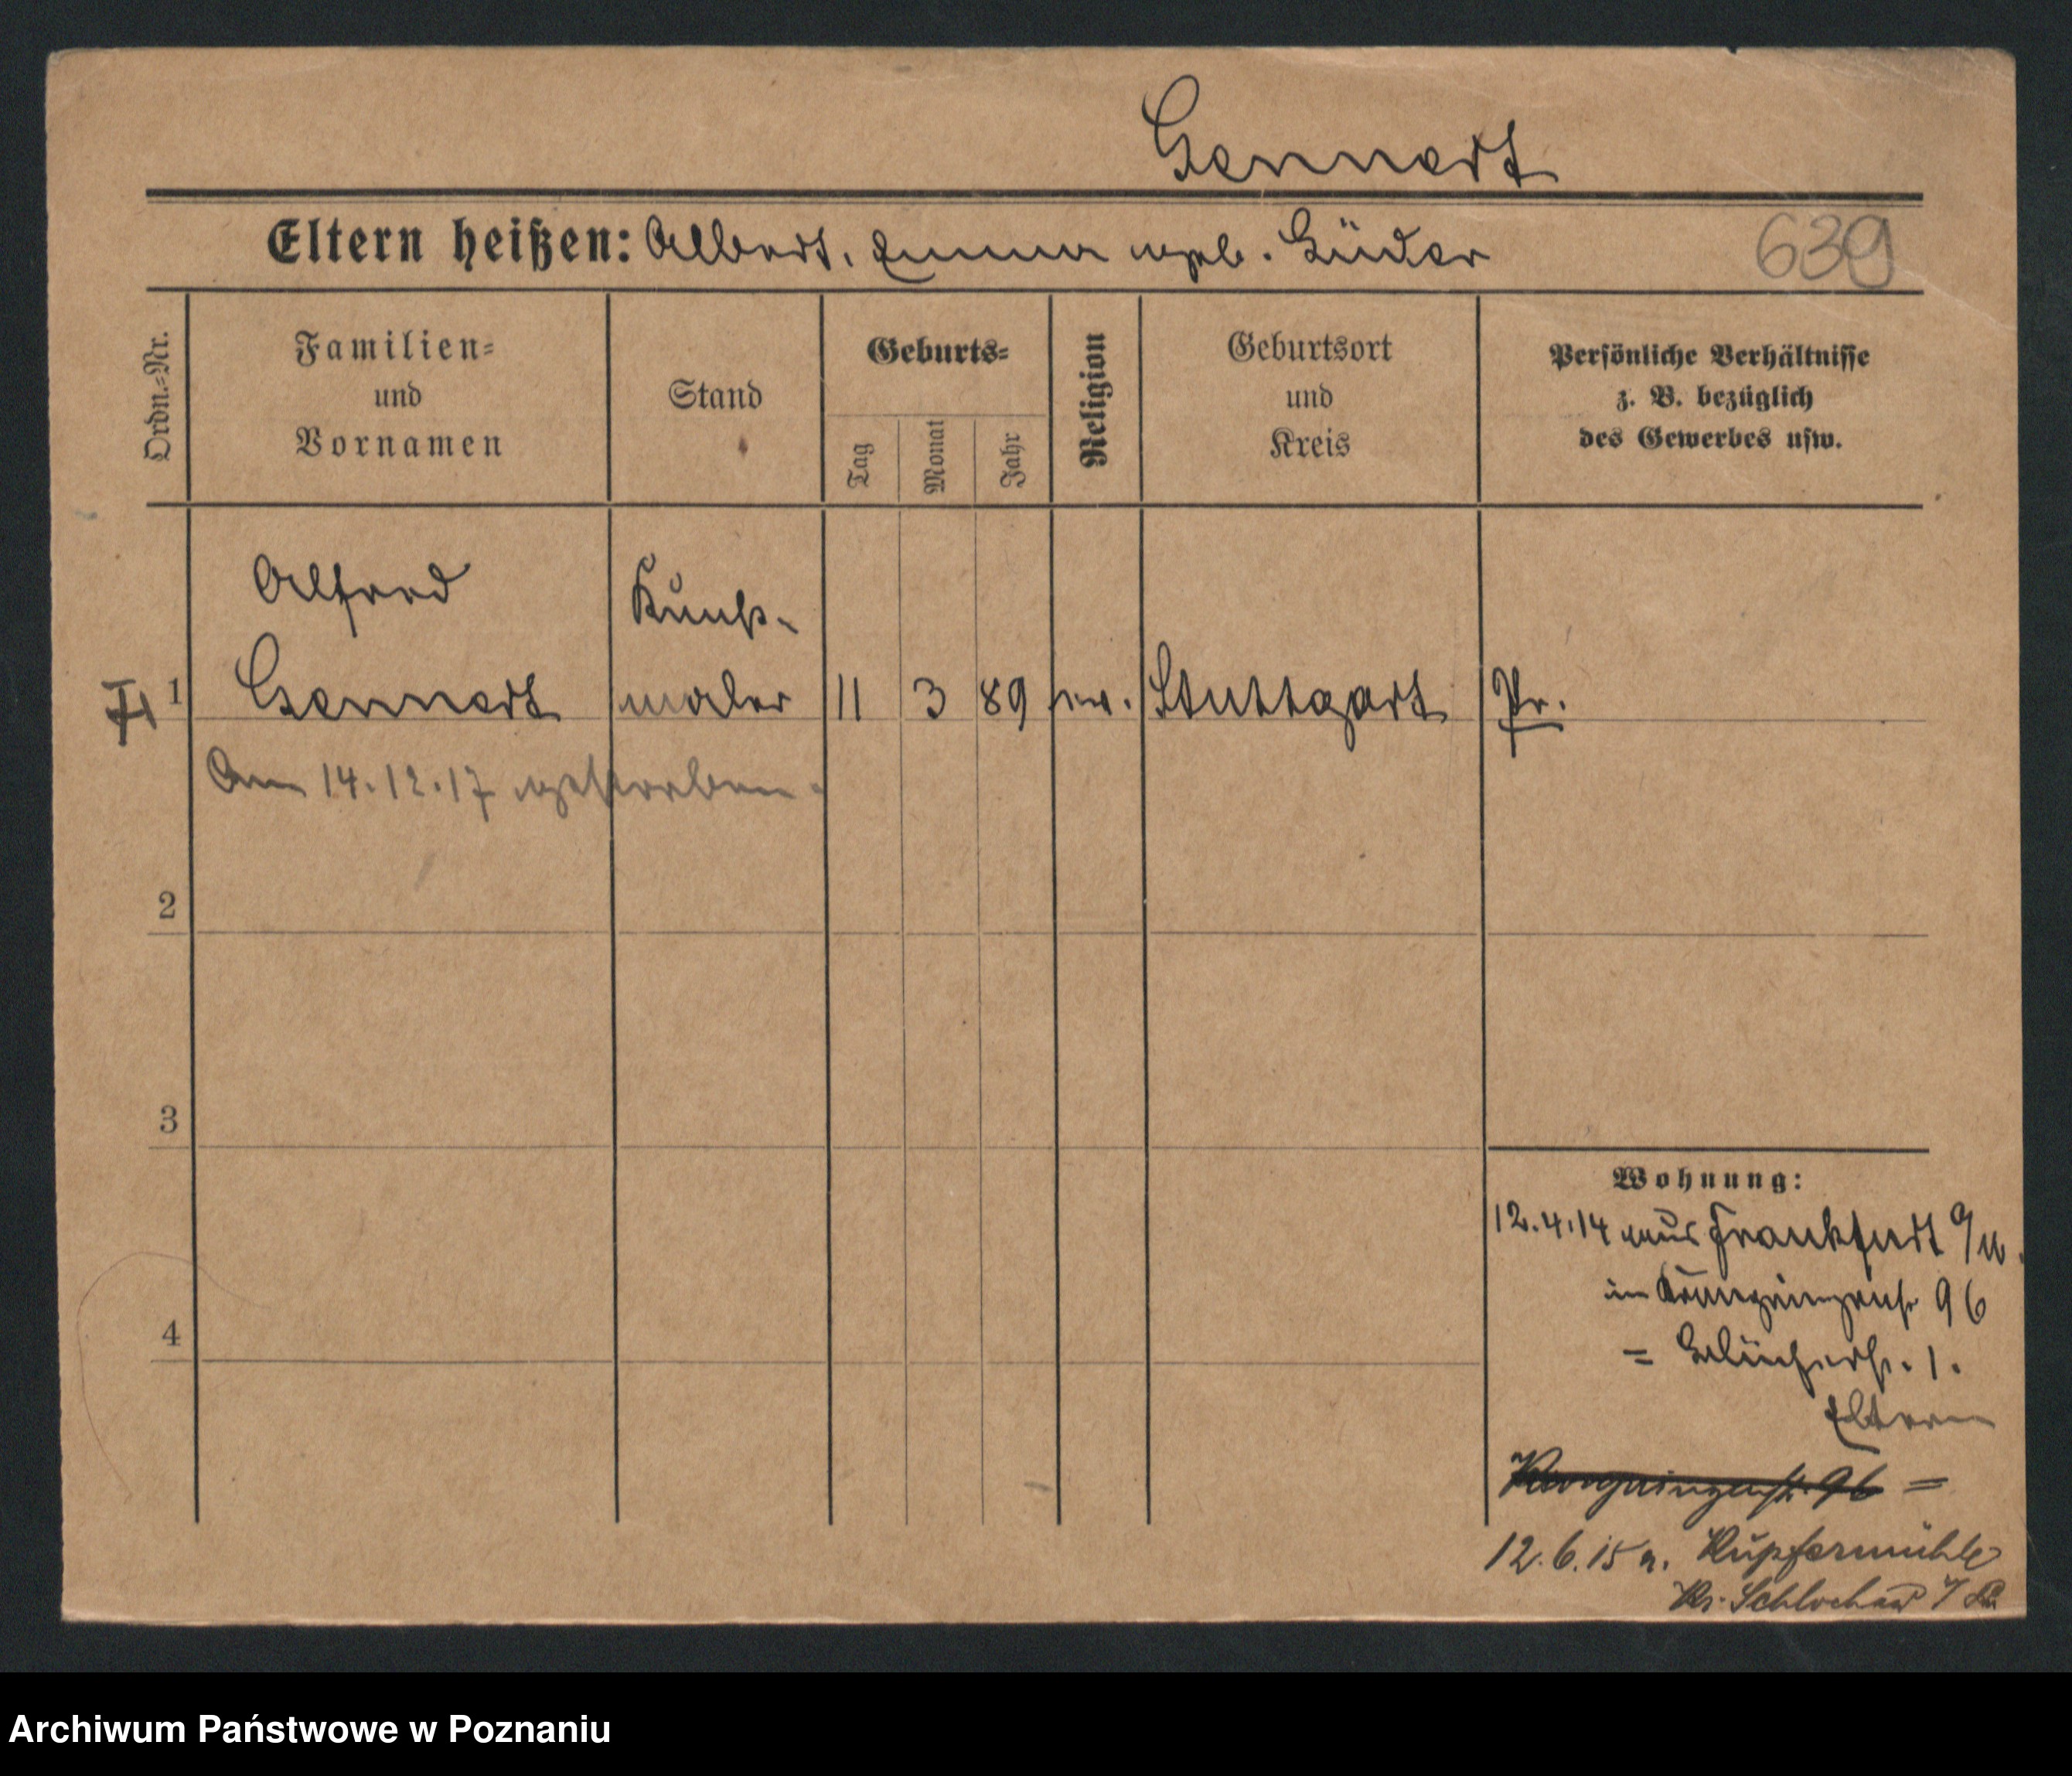 Gennert
Eltern heißen: Albert, Emma geb. Lüder
639
Ordn.-Nr.
Familien-
und
Vornamen
Stand
Geburts-
Tag
Monat
Jahr
Religion
Geburtsort
und
Kreis
Persönliche Verhältnisse
z. B. bezüglich
des Gewerbes usw.
Alfred
Kunst-
1 Gennert maler 11 3 89 ev. Stuttgart Pr.
Am 14.12.17 gestorben.
2
3
4
Wohnung:
12.4.14 aus Frankfurt a/M.
in Kronprinzenstr 96
= Blücherstr. 1.
Eltern
Kronprinzenstr. 96 =
12.6.15 n. Kupfermühle
Kr. Schlochau
Archiwum Państwowe w Poznaniu